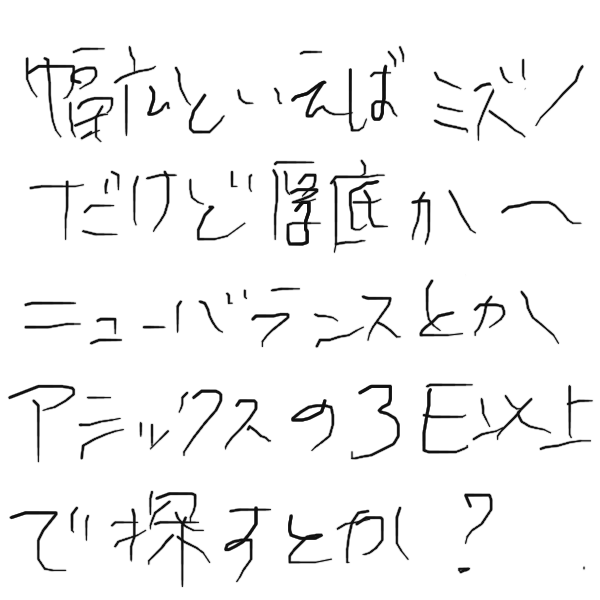 幅広といえばミズノ
だけど厚底かへ
ニューバランスとか
アシックスの3E以上
で探すとか?